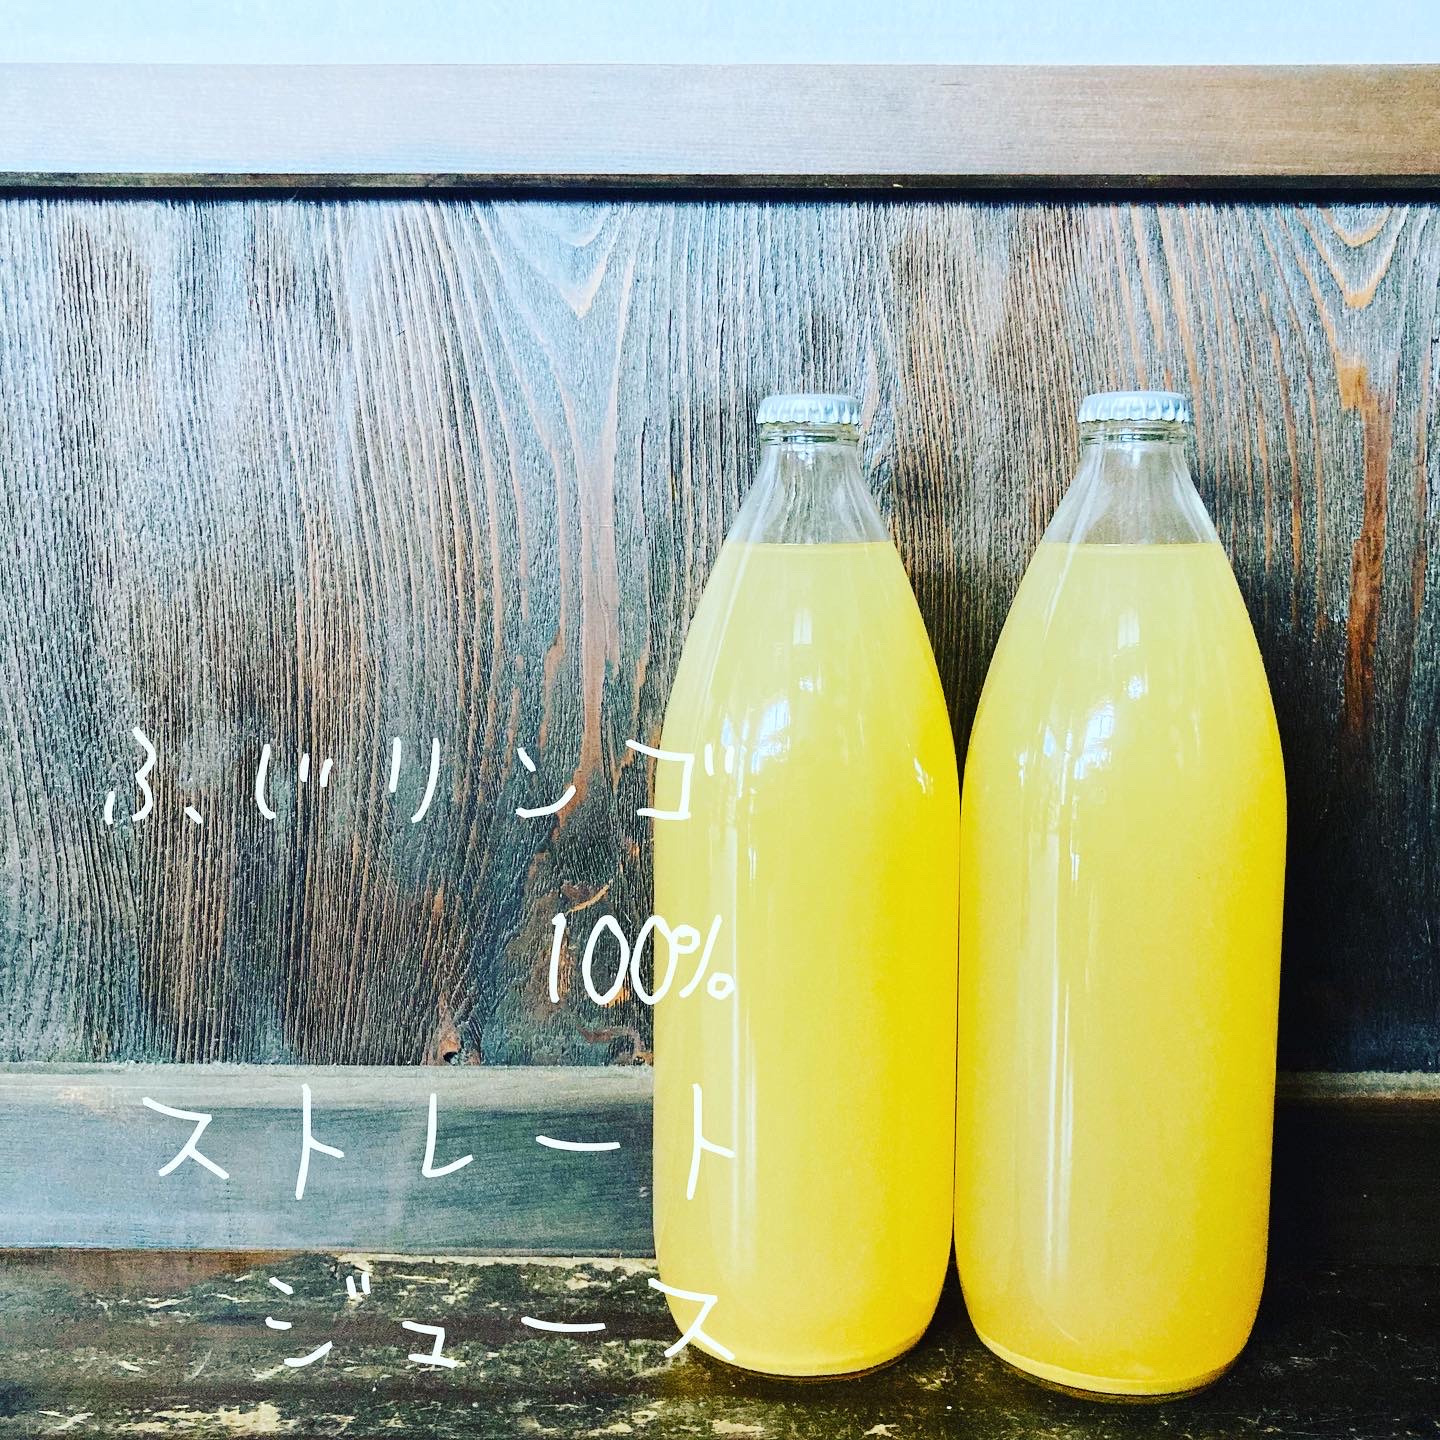 ふじリンゴ
100%
ストレート
ジュース